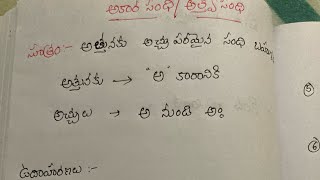 అకార సంధి / అత్వసంధి
సూత్రం :- అత్తునకు అచ్చు పరమైన సంధి
అత్తునకు → "అ" కారానికి
అచ్చులు → అ నుండి అం
ఉదాహరణలు :-
5
6